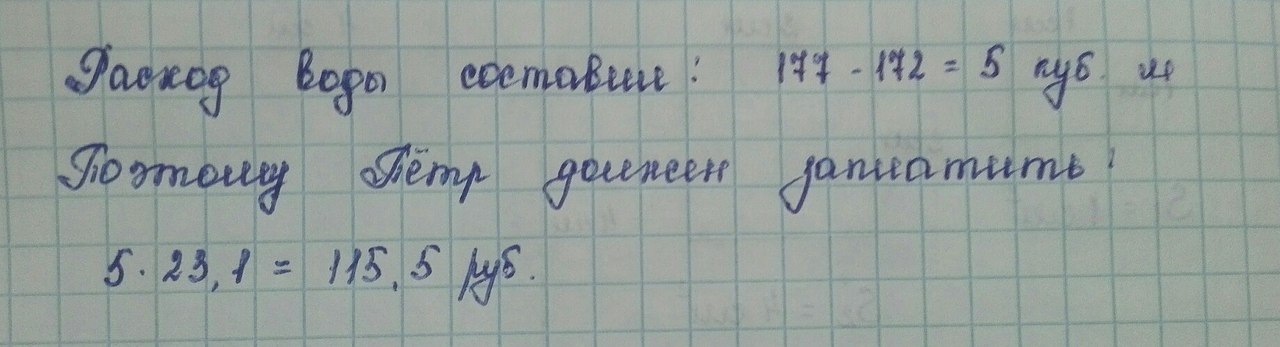 Расход воды составил: 177 - 172 = 5 куб. м
Поэтому Пётр должен заплатить:
5 · 23,1 = 115,5 руб.